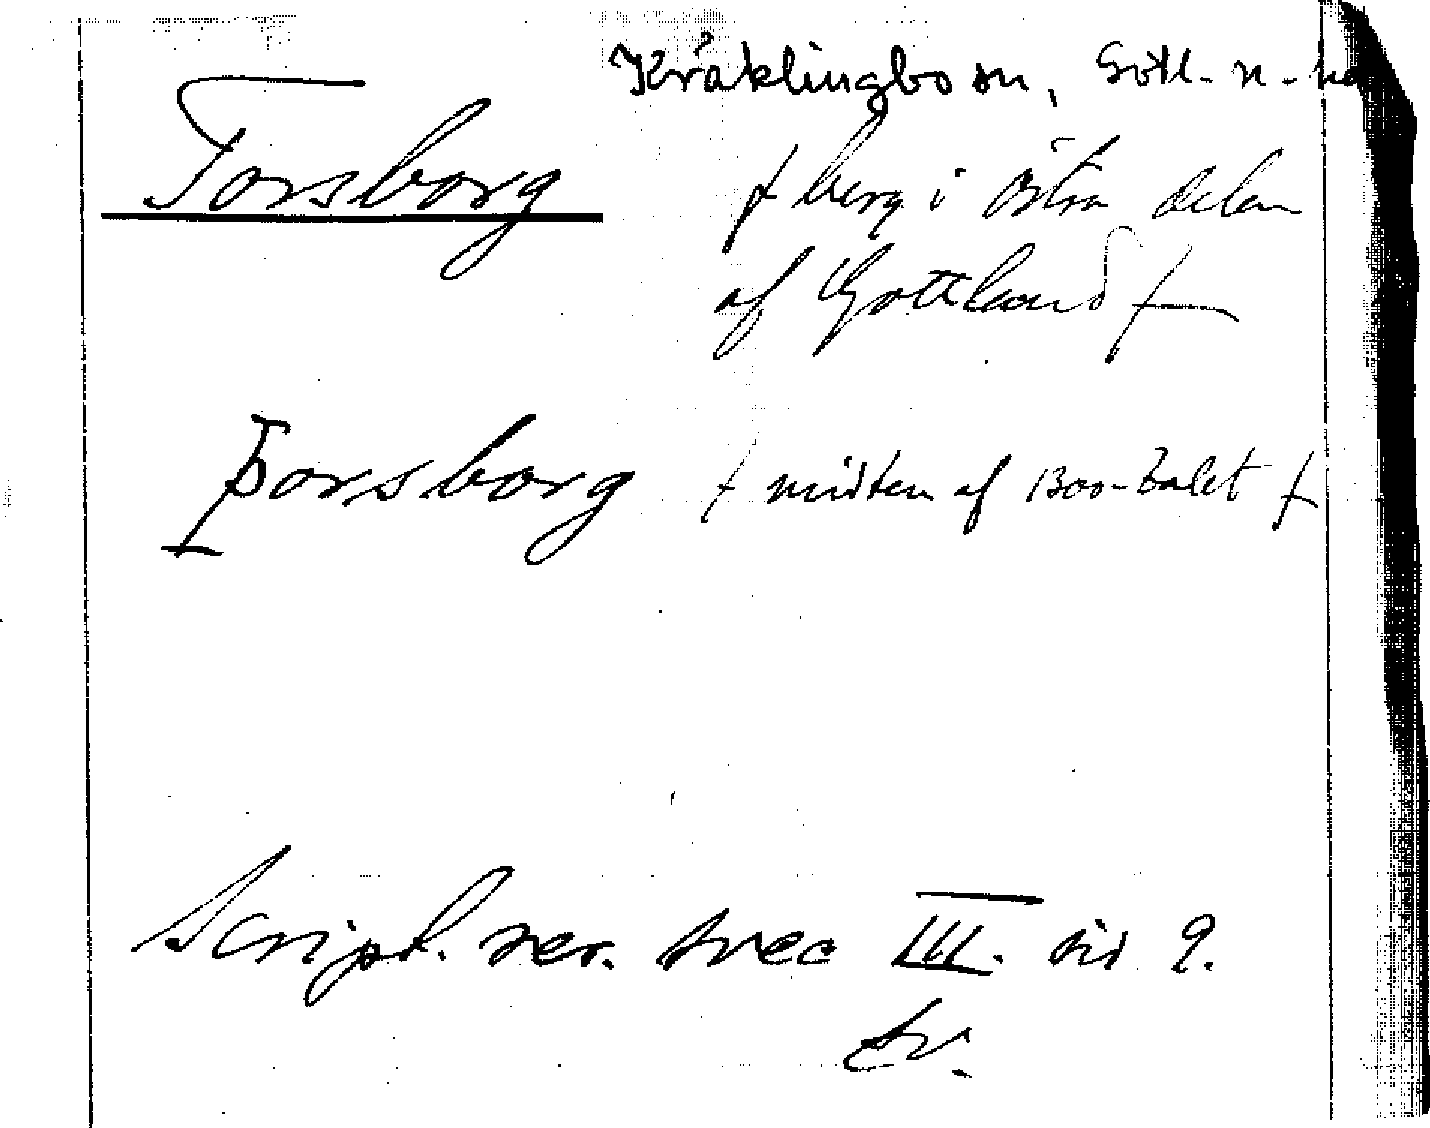 Kräklingbo sn, Gotl. n. hd
Torsborg
f berg i östra delen
af Gottland f
Þorsborg f midten af 1300-talet f
Script. rer. svec III. sid 9.
Sv.